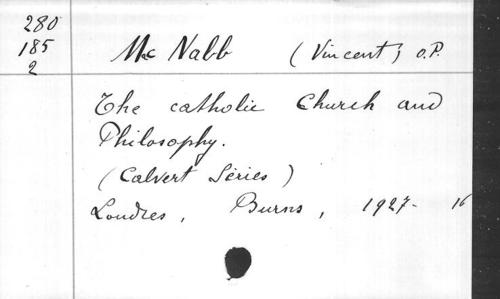 280
185
2
Mc Nabb (Vincent) O.P.
The catholic Church and
Philosophy.
(Calvert Series)
Londres, Burns, 1927- 16